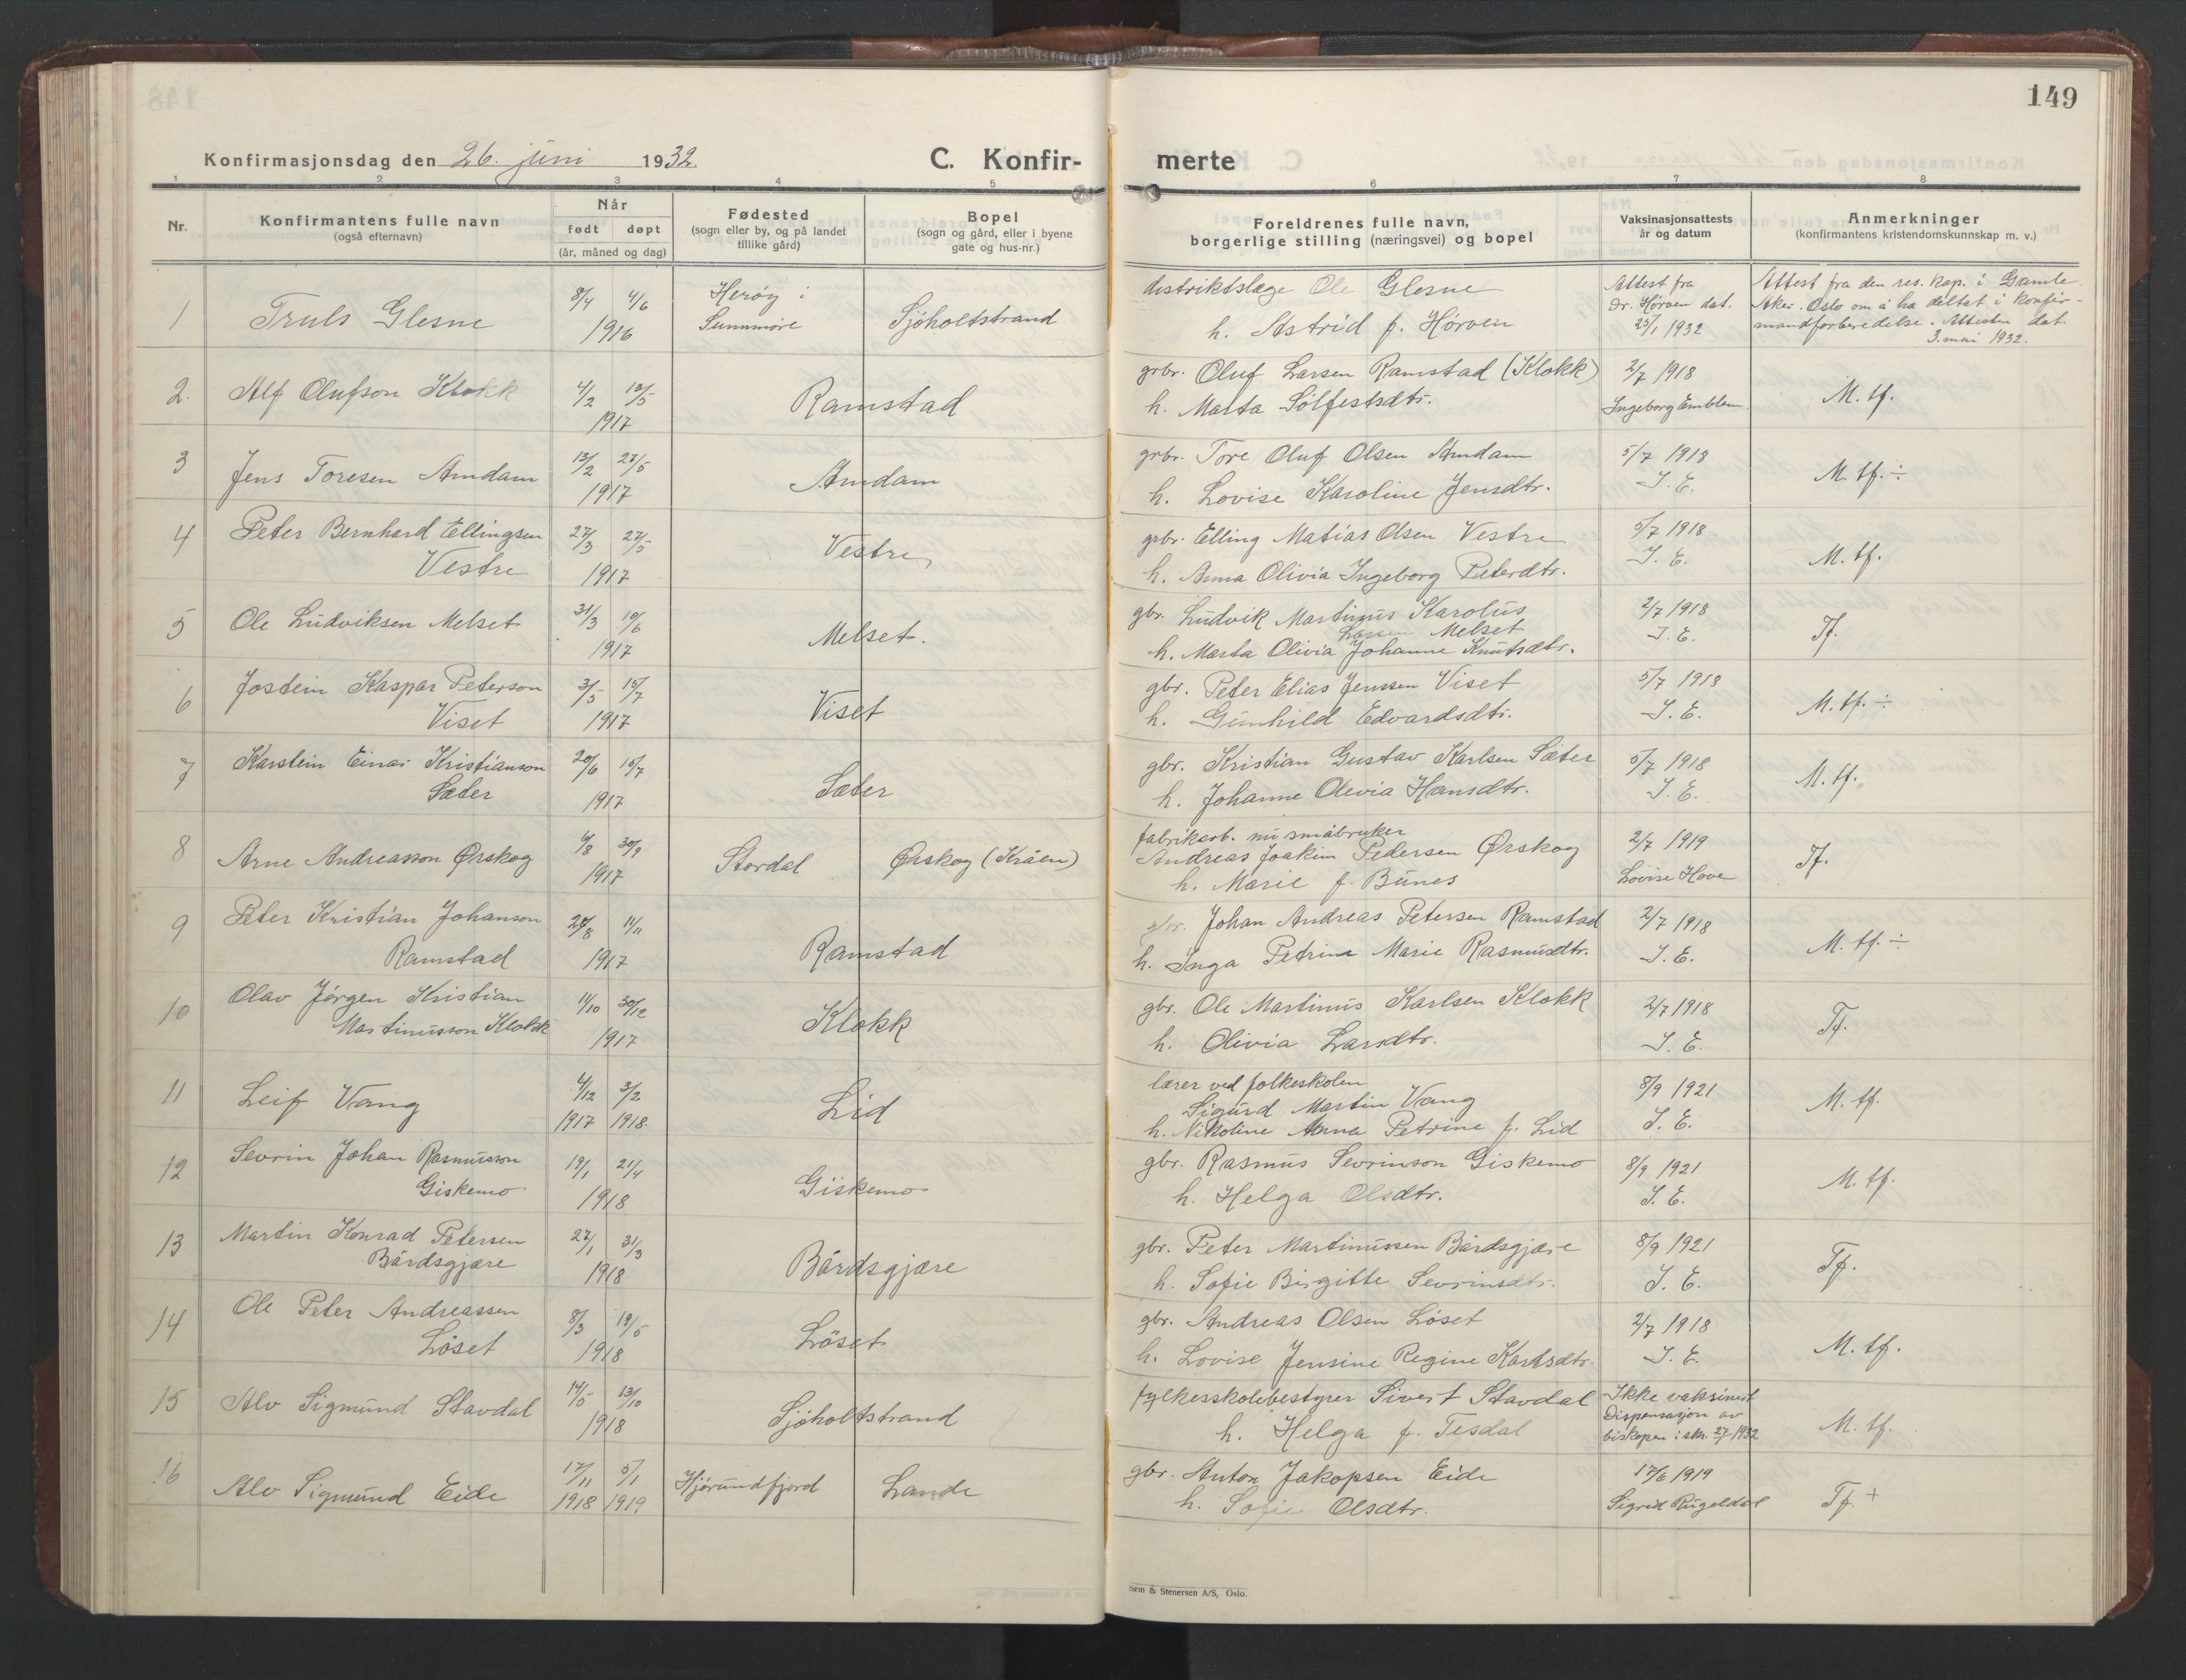 149
Konfirmasjonsdag den 26. juni 1932.
C. Konfir-
merte
1 2 3 4 5 6 7 8
Nr.
Konfirmantens fulle navn
(også efternavn)
Når
født døpt
(år, måned og dag)
Fødested
(sogn eller by, og på landet
tillike gård)
Bopel
(sogn og gård, eller i byene
gate og hus-nr.)
Foreldrenes fulle navn,
borgerlige stilling (næringsvei) og bopel
Vaksinasjonsattests
år og datum
Anmerkninger
(konfirmantens kristendomskunnskap m. v.)
1 Truls Glesne 8/4 4/6 1916
Herøy i
Sunnmøre
Sjøholtstrand
distriktslæge Ole Glesne
h. Astrid f. Hørven
Attest fra
Dr. Hørven dat.
25/1 1932
Attest fra den res. kap. i Gamle
Aker. Oslo om å ha deltat i konfir-
mandforberedelse. Attesten dat.
3. mai 1932.
2. Alf Olufson Klokk 4/2 13/5 1917
Ramstad
grbr. Oluf Larsen Ramstad (Klokk)
h. Marta Sølfestsdtr.
2/7 1918
Ingeborg Emblem
M. tf.
3 Jens Toresen Amdam 13/2 27/5 1917
Amdam
grbr. Tore Oluf Olsen Amdam
h. Lovise Karoline Jensdtr.
5/7 1918
I. E.
M. tf. ÷
4 Peter Bernhard Ellingsen
Vestre
27/3 27/5 1917
Vestre
grbr. Elling Matias Olsen Vestre
h. Anna Olivia Ingeborg Peterdtr.
5/7 1918
I. E.
M. tf.
5 Ole Ludviksen Melset 31/3 10/6 1917
Melset.
gbr. Ludvik Martinus Karolus
Larsen Melset
h. Marta Olivia Johanne Knutsdtr.
2/7 1918
I. E.
Tf.
6 Jostein Kaspar Peterson
Viset
3/5 15/7 1917
Viset
gbr. Peter Elias Jenssen Viset
h. Gunhild Edvardsdtr.
5/7 1918
I. E.
M. tf. ÷
7 Karstein Einar Kristianson
Sæter
20/6 15/7 1917
Sæter
gbr. Kristian Gustav Karlsen Sæter
h. Johanne Olevia Hansdtr.
5/7 1918
I. E.
M. tf.
8 Arne Andreasson Ørskog 6/8 30/9 1917
Stordal
Ørskog (Kråen)
fabrikarb. nu småbruker
Andreas Joakim Pedersen Ørskog
h. Marie f. Bunes
2/7 1919
Lovise Hove
Tf.
9 Peter Kristian Johanson
Ramstad
11/11 1917
Ramstad
Johan Andreas Petersen Ramstad
h. Inga Petrina Marie Rasmusdtr.
2/7 1918
I. E.
M. tf. ÷
10 Olav Jørgen Kristian
Martinusson Klokk
11/10 30/12 1917
Klokk
gbr. Ole Martinus Karlsen Klokk
h. Olivia Larsdtr.
2/7 1918
I. E.
Tf.
11 Leif Vang 4/12 3/2
1917 1918
Lid
lærer ved folkeskolen
Sigurd Martin Vang
h. Nikoline Anna Petrine f. Lid
8/9 1921
I. E.
M. tf.
12 Sevrin Johan Rasmusson
Giskemo
19/1 21/4 1918
Giskemo
gbr. Rasmus Sevrinson Giskemo
h. Helga Olsdtr.
8/9 1921
I. E.
M. tf.
13 Martin Konrad Petersen
Bårdsgjære
27/1 31/3 1918
Bårdsgjære
gbr. Peter Martinussen Bårdsgjære
h. Sofie Birgitte Sevrinsdtr.
8/9 1921
I. E.
Tf.
14 Ole Peter Andreassen
Løset
8/3 19/5 1918
Løset
gbr. Andreas Olsen Løset
h. Lovise Jensine Regine Karlsdtr.
2/7 1918
I. E.
M. tf.
15 Alv Sigmund Stavdal 14/5 13/10 1918
Sjøholtstrand
fylkesskolebestyrer Sivert Stavdal
h. Helga f. Tesdal
Ikke vaksinert
Dispensasjon av
biskopen i skr. 27/ 1932
M. tf.
16 Alv Sigmund Eide 17/11 5/1
1918 1919
Hjørundfjord
Lande
gbr. Anton Jakopsen Eide
h. Sofie Olsdtr.
17/6 1919
Sigrid
Tf +
Sem & Stenersen A/S, Oslo.